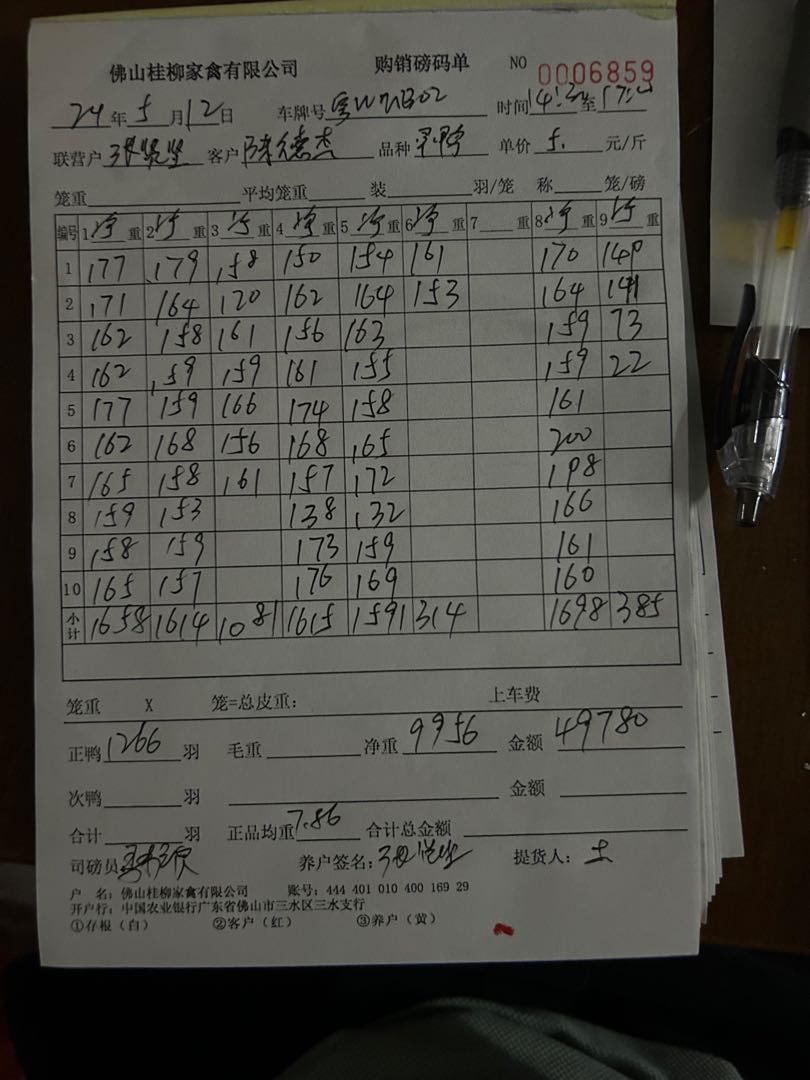 佛山桂柳家禽有限公司 购销磅码单 NO 0006859
24年5月12日 车牌号 时间14:30至17:
联营户 客户 陈德杰 品种 单价 5. 元/斤
笼重 平均笼重 装 羽/笼 称 笼/磅
编号 1净重 2净重 3净重 4净重 5净重 6净重 7重 8净重 9净重
1 177 179 158 150 154 161 170 149
2 171 164 120 162 164 153 164 141
3 162 158 161 156 163 159 73
4 162 159 159 161 155 159 22
5 177 159 166 174 158 161
6 162 168 156 168 165 200
7 165 158 161 157 172 198
8 159 153 138 132 166
9 158 159 173 159 161
10 165 157 176 169 160
小计 1658 1614 1081 1615 1591 314 1698 385
笼重 X 笼=总皮重: 上车费
正鸭 1266 羽 毛重 净重 9956 金额 49780
次鸭 羽 金额
合计 羽 正品均重 7.86 合计总金额
司磅员 养户签名: 提货人:
户 名:佛山桂柳家禽有限公司 账号:444 401 010 400 169 29
开户行:中国农业银行广东省佛山市三水区三水支行
①存根(白) ②客户(红) ③养户(黄)